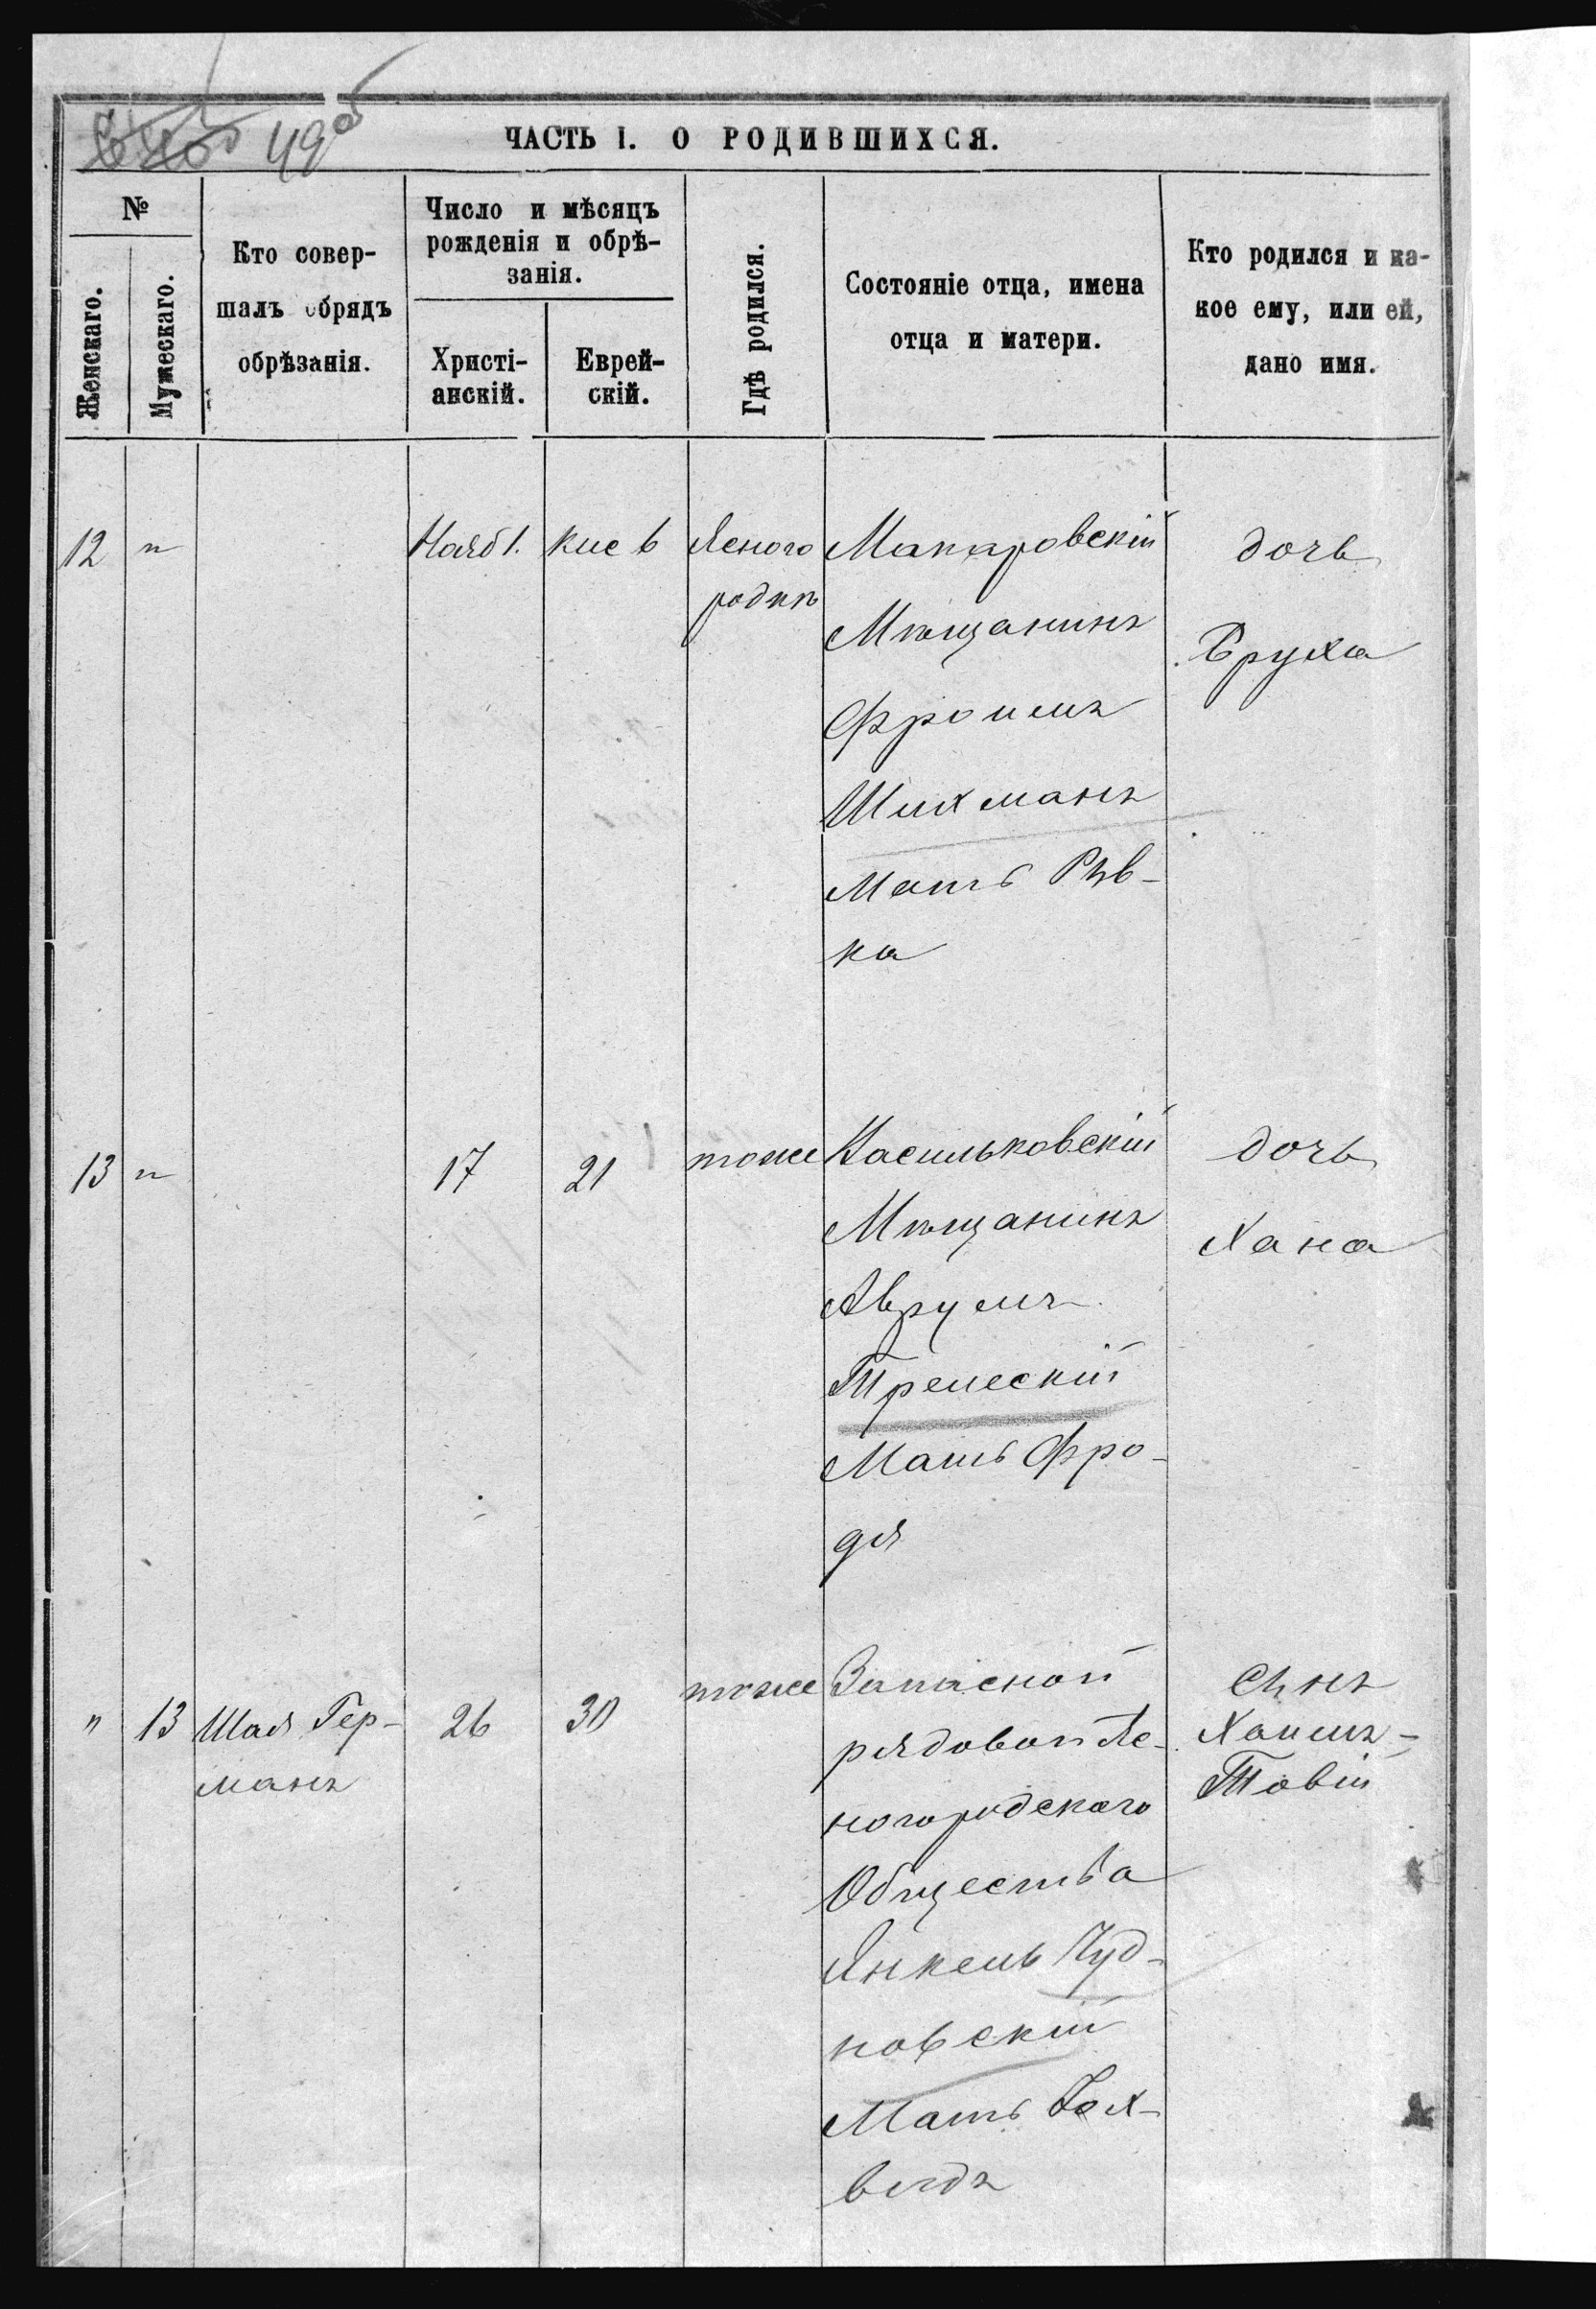 49об
ЧАСТЬ I. О РОДИВШИХСЯ.
№
Женскаго.
Мужескаго.
Кто совер-
шалъ обрядъ
обрѣзанія.
Число и мѣсяцъ
рожденія и обрѣ-
занія.
Христі-
анскій.
Еврей-
скій.
Гдѣ родился.
Состояніе отца, имена
отца и матери.
Кто родился и ка-
кое ему, или ей,
дано имя.
12 " Нояб 1. Кис 6 Ясного
родкѣ
Макаровскій
Мѣщанинъ
Фроимъ
Шихманъ
Мать Рыв-
ка
дочь
Бруха
13 " 17 21 тоже
Васильковскій
Мѣщанинъ
Аврумъ
Трелескій
Мать Фро-
дя
дочь
Хана
" 13 Шая Гер-
манъ
26 30 тоже
Запасной
рядовой Яс-
ногородскаго
Общества
Янкель Чуд-
новскій
Мать Іох-
ведъ
Сынъ
Хаимъ-
Товій